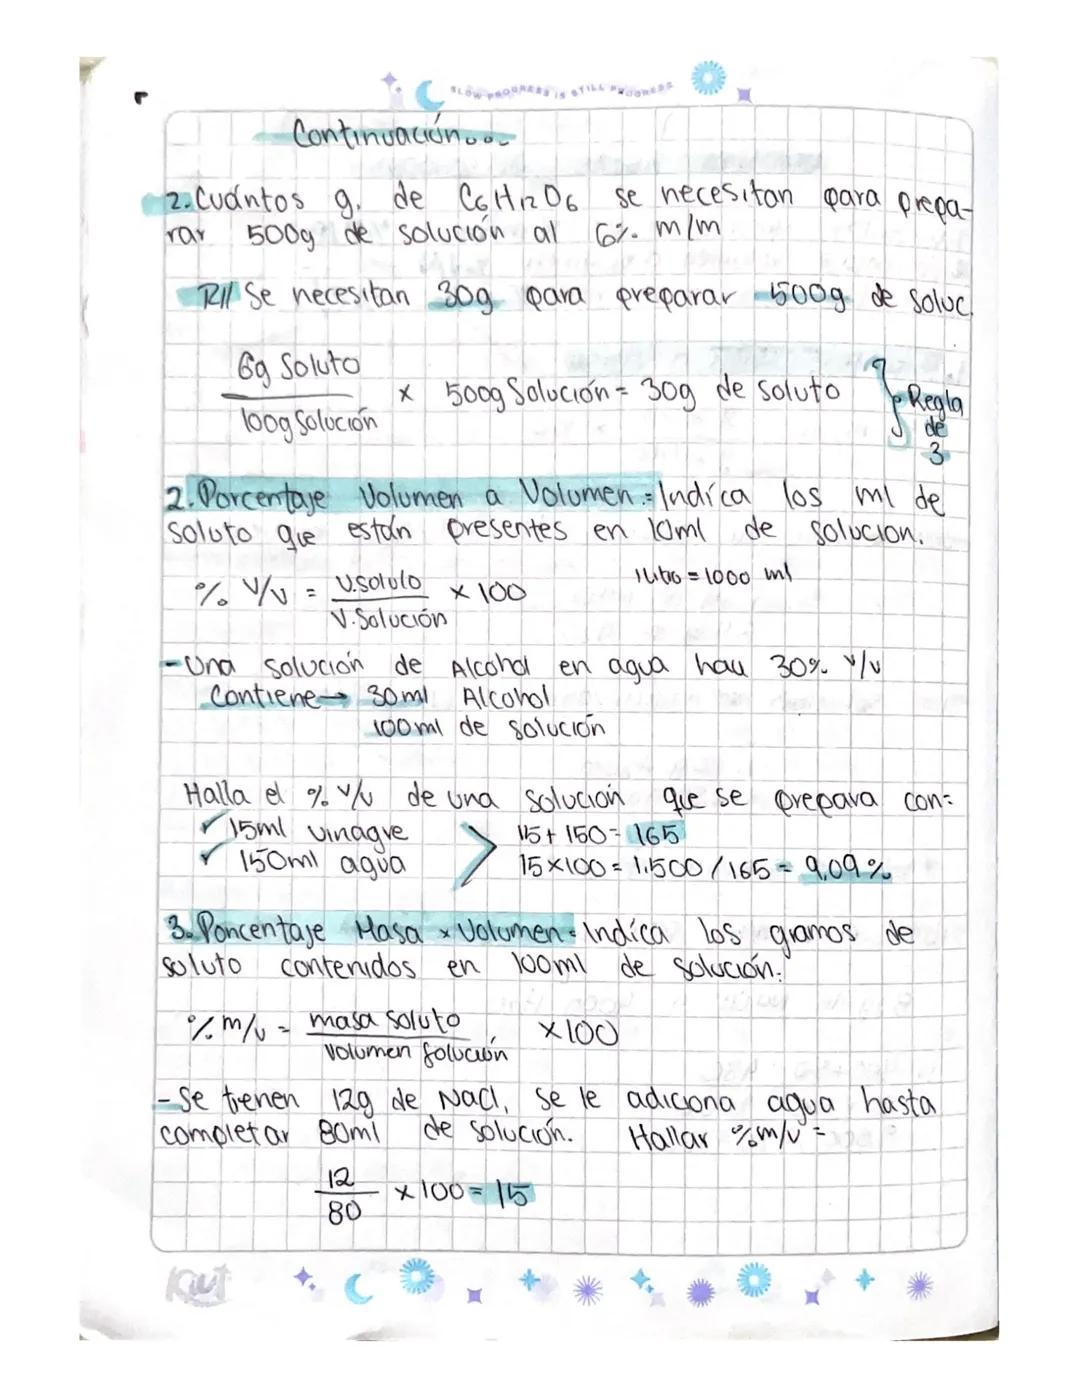 SLOW PROGRESS IS STILL PROGRESS
Continuación...
2. Cuántos g. de C6H12O6 se necesitan para prepa-
rar 500g de solución al 6% m/m
R// Se necesitan 30g para preparar 500g de soluc.
6g Soluto
100g Solución
x 500g Solución = 30g de soluto
Regla
de
3
2. Porcentaje Volumen a Volumen = Indíca los ml de
soluto que están presentes en 10ml de solucion.
1 litro = 1000 ml
% v/v = V.soluto x 100
V. Solución
- Una solución de Alcohol en agua hau 30% v/v
Contiene → 30ml Alcohol
100ml de solución
Halla el % v/v de una solución que se prepara con:
✓ 15ml vinagre > 15 + 150 = 165
✓ 150ml agua 15x100 = 1.500 / 165 = 9,09%
3. Poncentaje Masa x Volumen = Indíca los gramos de
soluto contenidos en 100ml de solución.
% m/v = masa soluto x100
Volumen solución
- Se tienen 12g de NaCl, se le adiciona agua hasta
completar 80ml de solución. Hallar % m/v =
12
80
x 100 = 15
Kiut